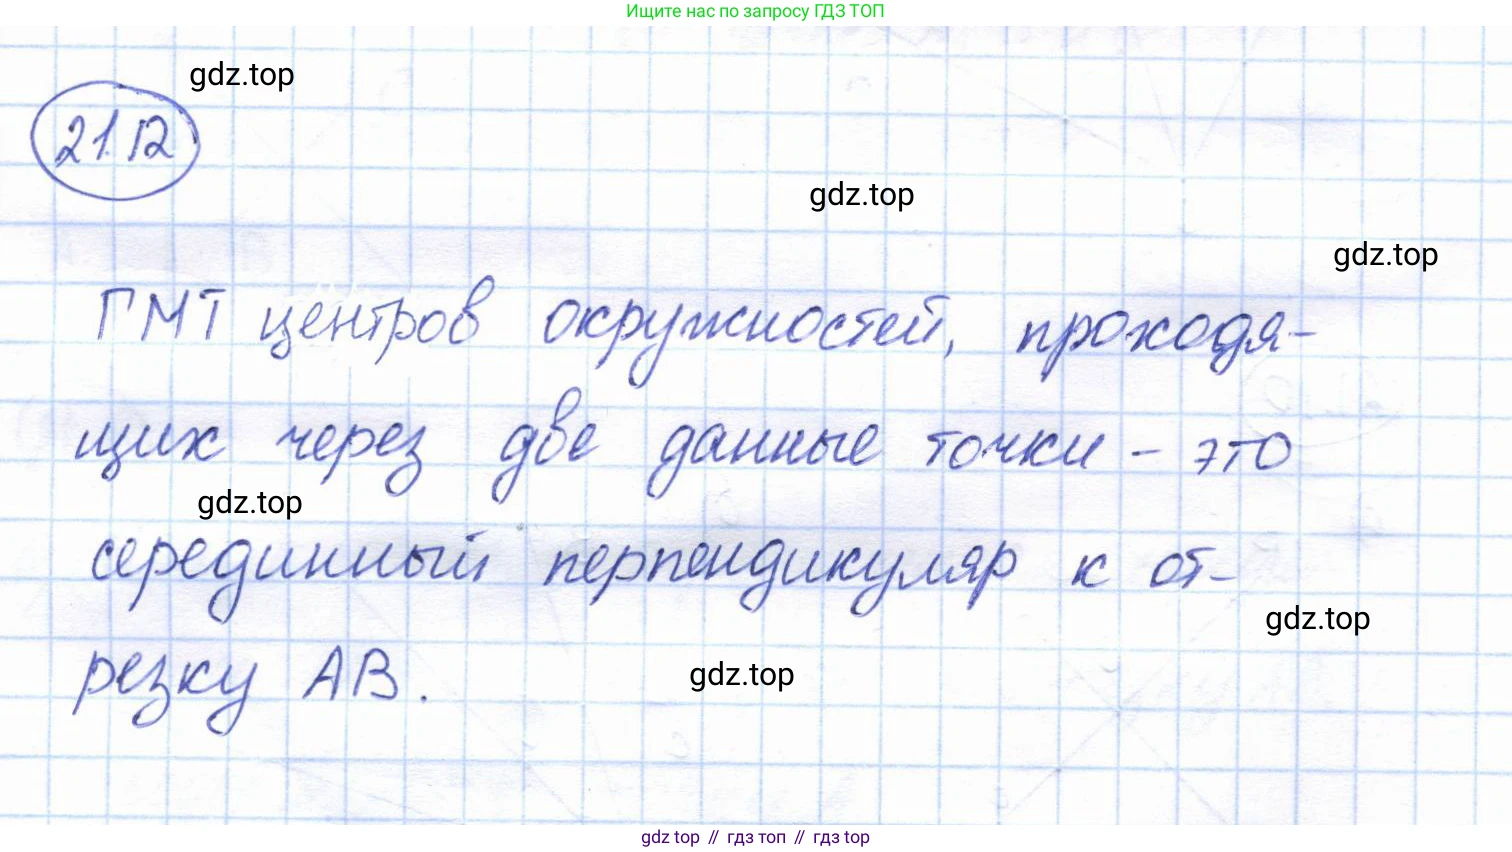 Ищите нас по запросу ГДЗ ТОП
gdz.top
21.12
gdz.top
gdz.top
ГМТ центров окружностей, проходя-
щих через две данные точки - это
gdz.top
серединный перпендикуляр к от-
gdz.top
резку АВ.
gdz.top
gdz top // гдз топ // гдз top